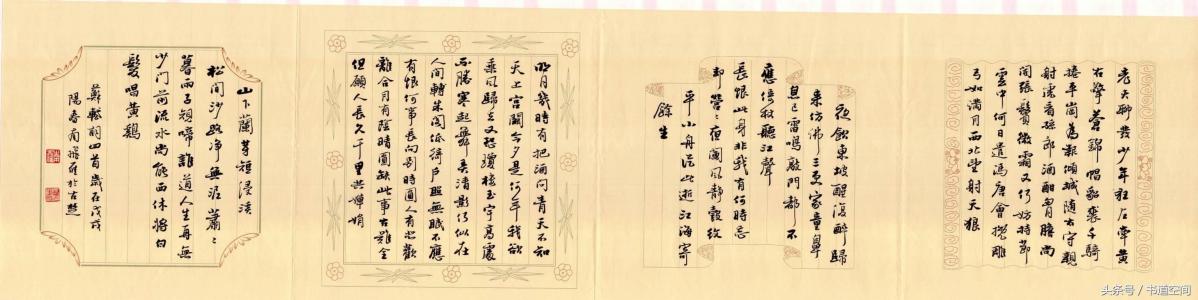 老夫聊發少年狂左牽黃
右擎蒼錦帽貂裘千騎
捲平崗為報傾城隨太守親
射虎看孫郎酒酣胸膽尚
開張鬢微霜又何妨持節
雲中何日遣馮唐會挽雕
弓如滿月西北望射天狼
夜飲東坡醒復醉歸
來彷彿三更家童鼻
息已雷鳴敲門都不
應倚杖聽江聲
長恨此身非我有何時忘
卻營〻夜闌風靜縠紋
平小舟從此逝江海寄
餘生
明月幾時有把酒問青天不知
天上宮闕今夕是何年我欲
乘風歸去又恐瓊樓玉宇高處
不勝寒起舞弄清影何似在
人間轉朱閣低綺戶照無眠不應
有恨何事長向別時圓人有悲歡
離合月有陰晴圓缺此事古難全
但願人長久千里共嬋娟
山下蘭芽短浸溪
松間沙路淨無泥蕭〻
暮雨子規啼誰道人生再無
少門前流水尚能西休將白
髮唱黃雞
蘇軾詞四首歲在戊戌
陽春南
头条号 / 书道空间